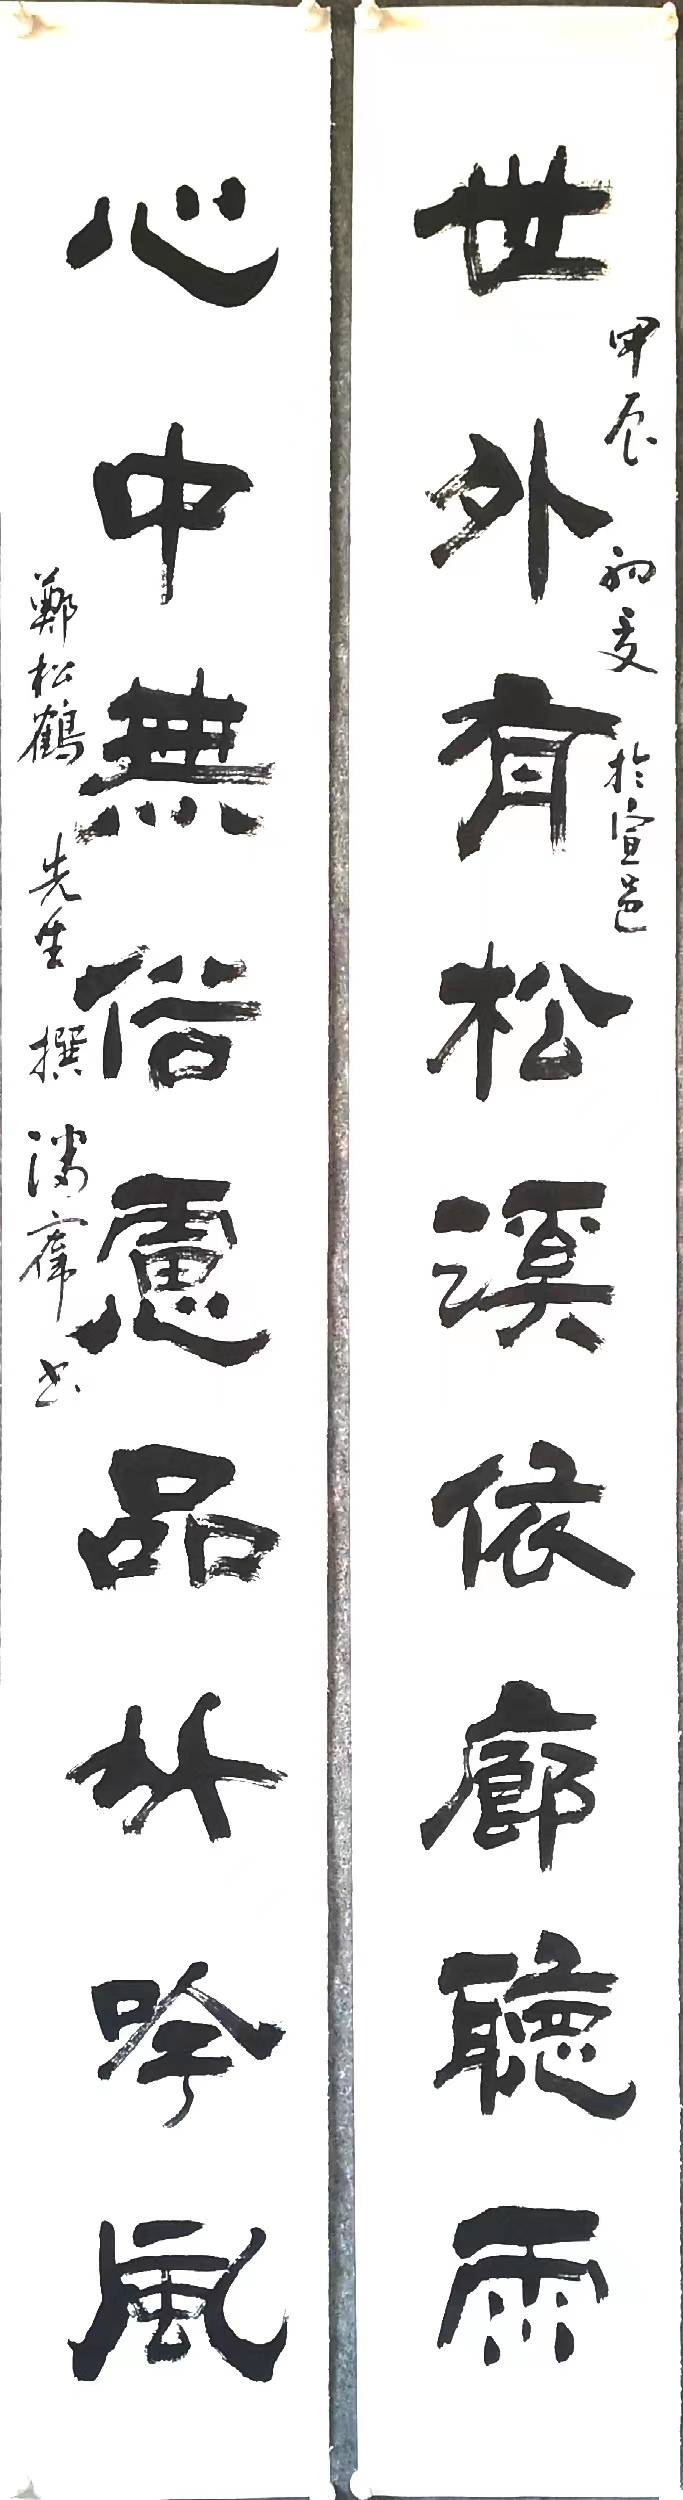 甲辰 初夏 於宣邑
世外有松溪依廊聽雨
心中無俗慮品竹吟風
鄭松鶴 先生 撰 书